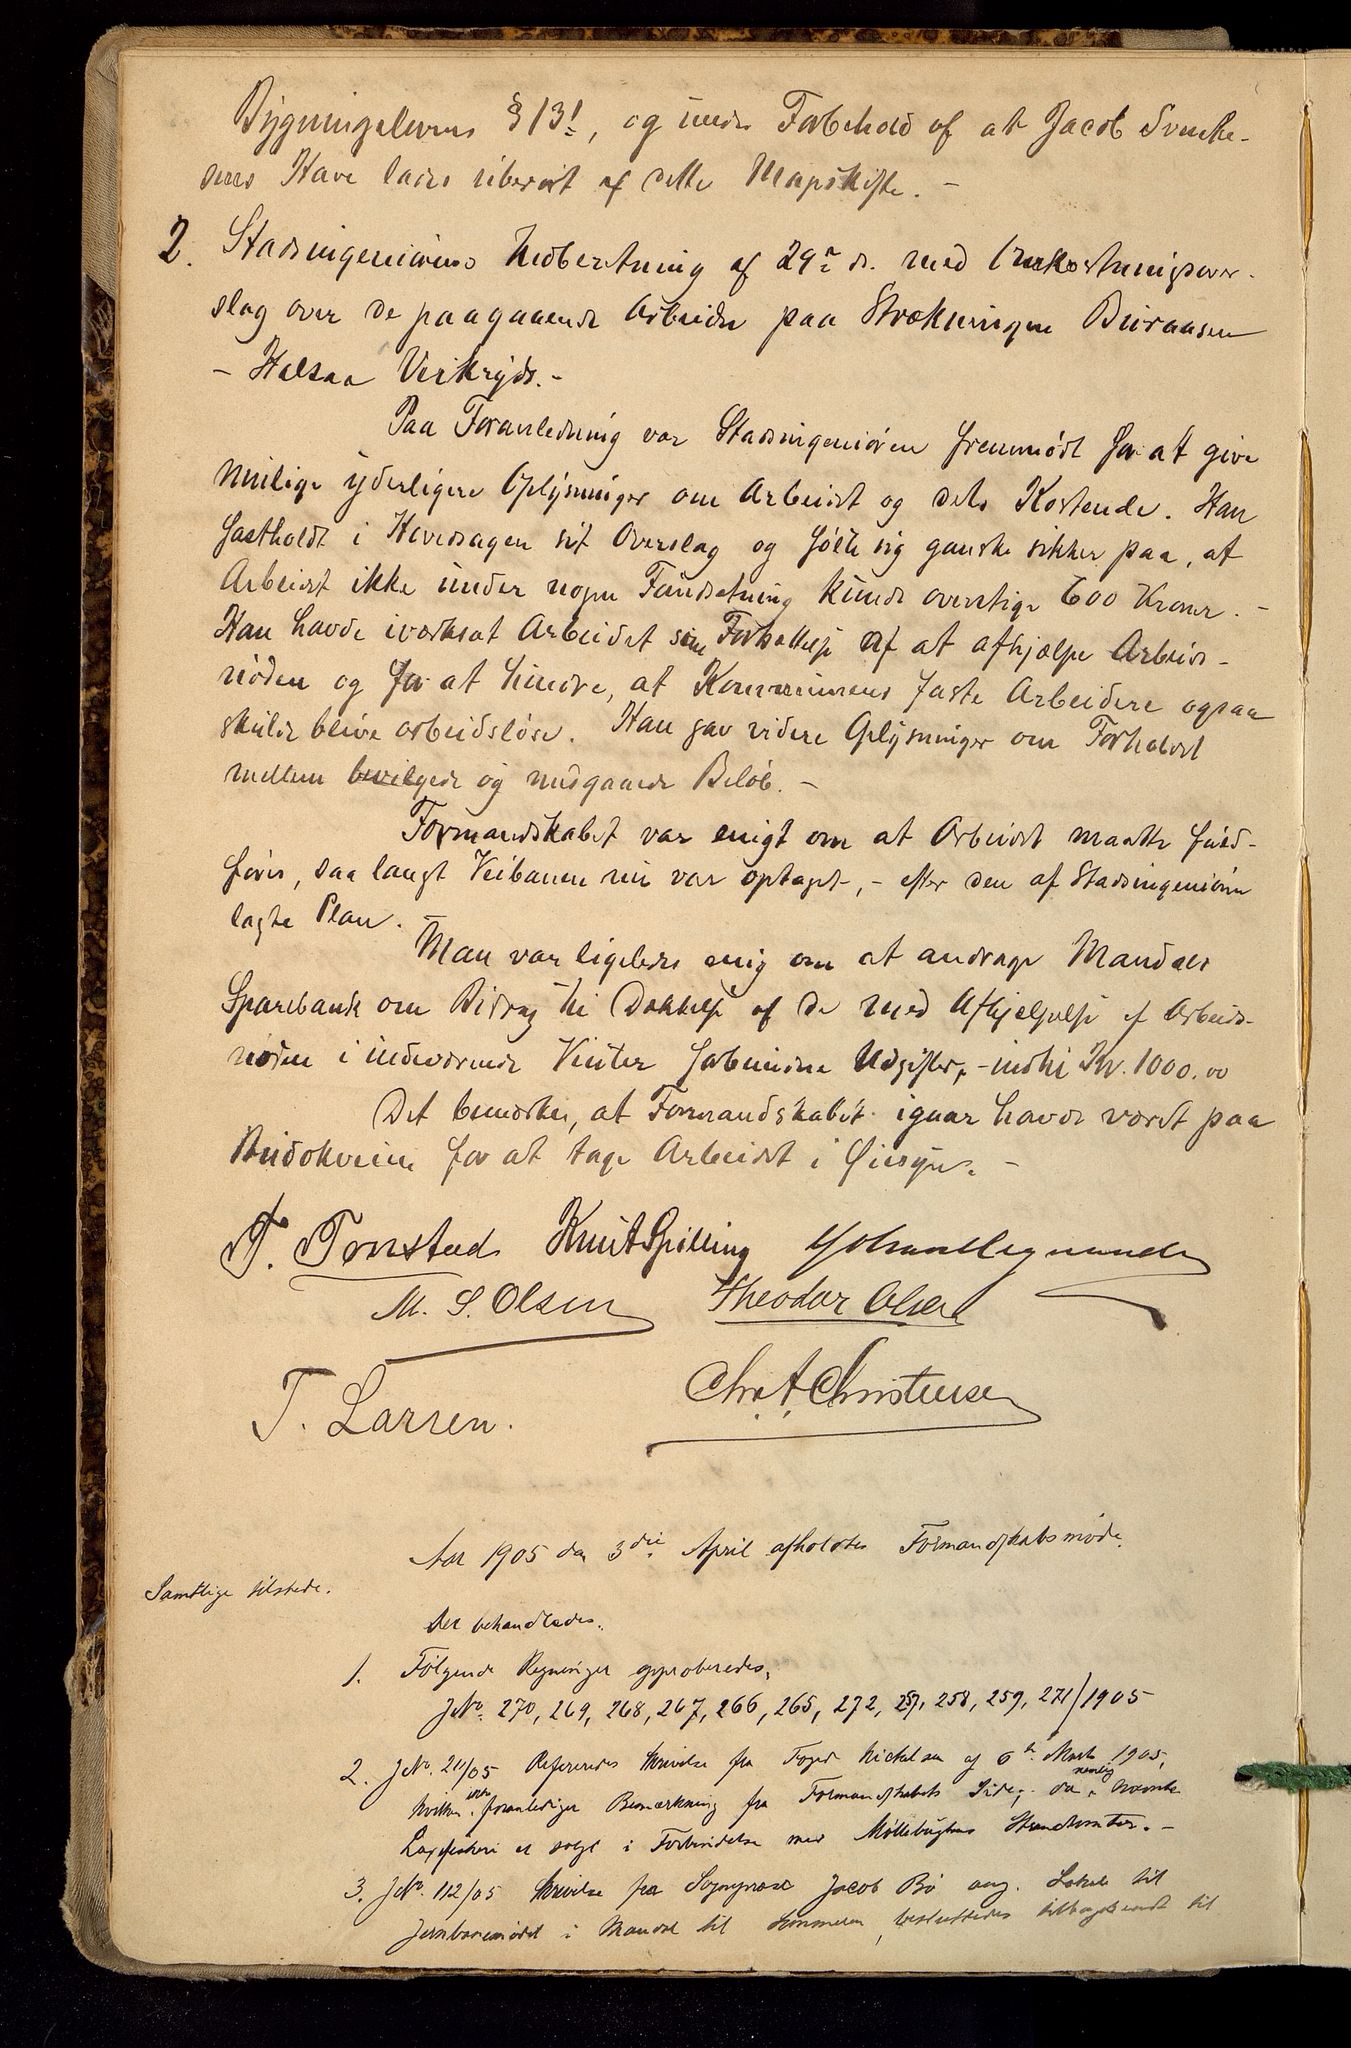 Bygningslovens § 13!, og under Forbehold af at Jacob Svenke-
sens Have lades uberørt af dette Mageskifte. -
2. Stadsingeniørens Indberetning af 29de ds. med Omkostningsover-
slag over de paagaaende Arbeider paa Strækningen Buraasen
- Halsaa Veikryds. -
Paa Foranledning var Stadsingeniøren fremmødt for at give
mulige yderligere Oplysninger om Arbeidet og dets Kostende. Han
fastholdt i Hovedsagen sit Overslag og følte sig ganske sikker paa, at
Arbeidet ikke under nogen Fundsætning kunde overstige 600 Kroner. -
Han havde iværksat Arbeidet som af at afhjælpe Arbeids-
nøden og for at hindre, at Kommunens faste Arbeidere ogsaa
skulde blive arbeidsløse. Han gav videre Oplysninger om Forholdet
mellem bevilgede og medgaaede Beløb. -
Formandskabet var enigt om at Arbeidet maatte fuld-
føres, saa langt Veibanen nu var optaget, - efter den af Stadsingeniøren
lagte Plan. -
Man var ligeledes enig om at andrage Mandals
Sparebank om Bidrag til Dækkelse af de med Afhjælpelse af Arbeids-
nøden i indeværende Vinter forbundne Udgifter, - indtil Kr. 1000.00
Det bemærkes, at Formandskabet igaar havde været paa
for at tage Arbeidet i Øiesyn. -
T. Tronstad Knut Spilling
M. S. Olsen Theodor Olsen
T. Larsen. Chr. A. Christensen
Aar 1905 den 3die April afholdtes Formandskabsmøde.
Samtlige tilstede.
Der behandledes.
1. Følgende Regninger approberedes,
J No. 270, 269, 268, 267, 266, 265, 272, 257, 258, 259, 271/1905
2. J No. 211/05 Refereredes Skrivelse fra Foged Mickelsen af 6te Marts 1905,
hvilken foranlediger Bemærkning fra Formandskabets Side, da nemlig nævnte
Laxefiskeri er solgt i Forbindelse med Møllebugtens Strandtomter. -
3. J No. 112/05 Skrivelse fra Sogneprest Jacob Bø ang. Lokale til
i Mandal til Sommeren, besluttedes tilbagesendt til